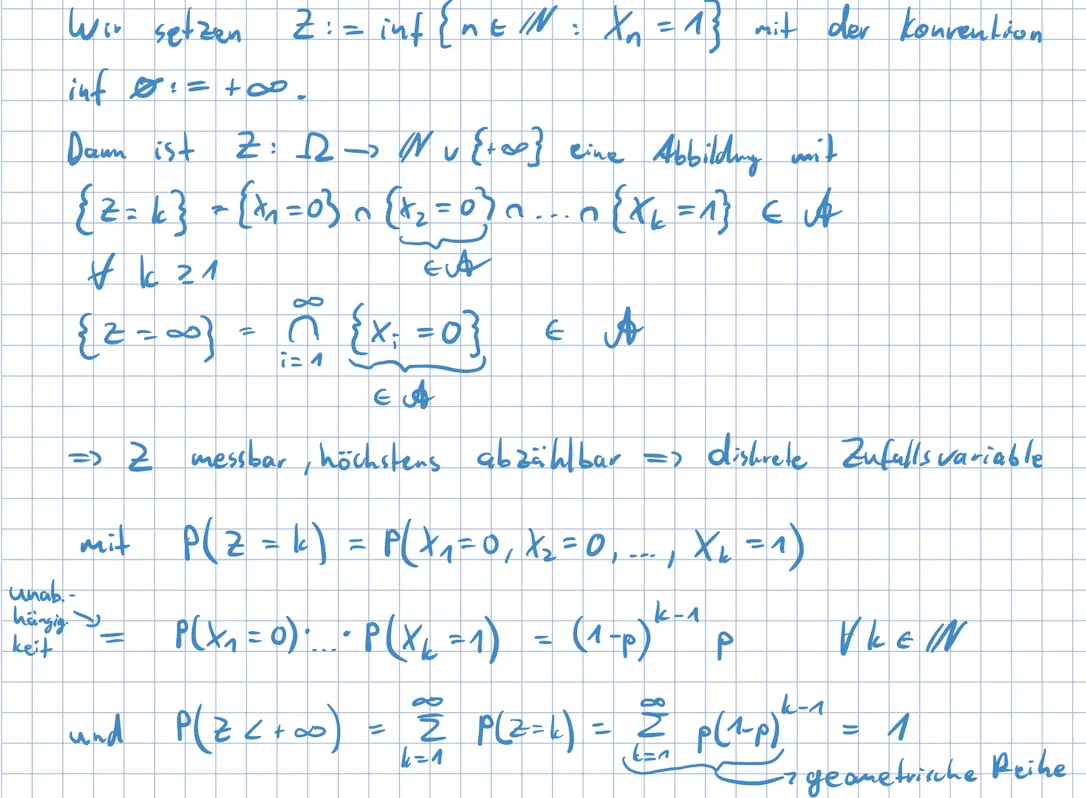 Wir setzen Z := inf {n ∈ ℕ : Xₙ = 1} mit der Konvention
inf ∅ := +∞.
Dann ist Z : Ω → ℕ ∪ {+∞} eine Abbildung mit
{Z = k} = {X₁ = 0} ∩ {X₂ = 0} ∩ ... ∩ {Xₖ = 1} ∈ 𝔸
∈ 𝔸
∀ k ≥ 1
{Z = ∞} = ⋂_{i=1}^{∞} {Xᵢ = 0} ∈ 𝔸
∈ 𝔸
=> Z messbar, höchstens abzählbar => diskrete Zufallsvariable
mit P(Z = k) = P(X₁ = 0, X₂ = 0, ..., Xₖ = 1)
unab.-
hängig-
keit
= P(X₁ = 0) · ... · P(Xₖ = 1) = (1-p)^{k-1} p ∀ k ∈ ℕ
und P(Z < +∞) = ∑_{k=1}^{∞} P(Z = k) = ∑_{k=1}^{∞} p(1-p)^{k-1} = 1
→ geometrische Reihe